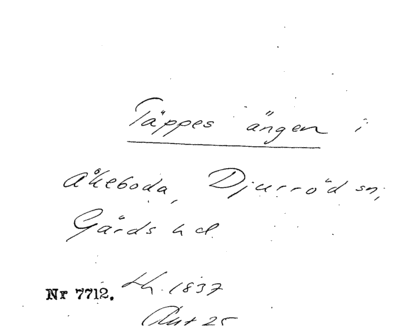 Täppes ängen i
Åkeboda, Djurröd sn,
Gärds hd
Nr 7712. Lh. 1837
Rut 25